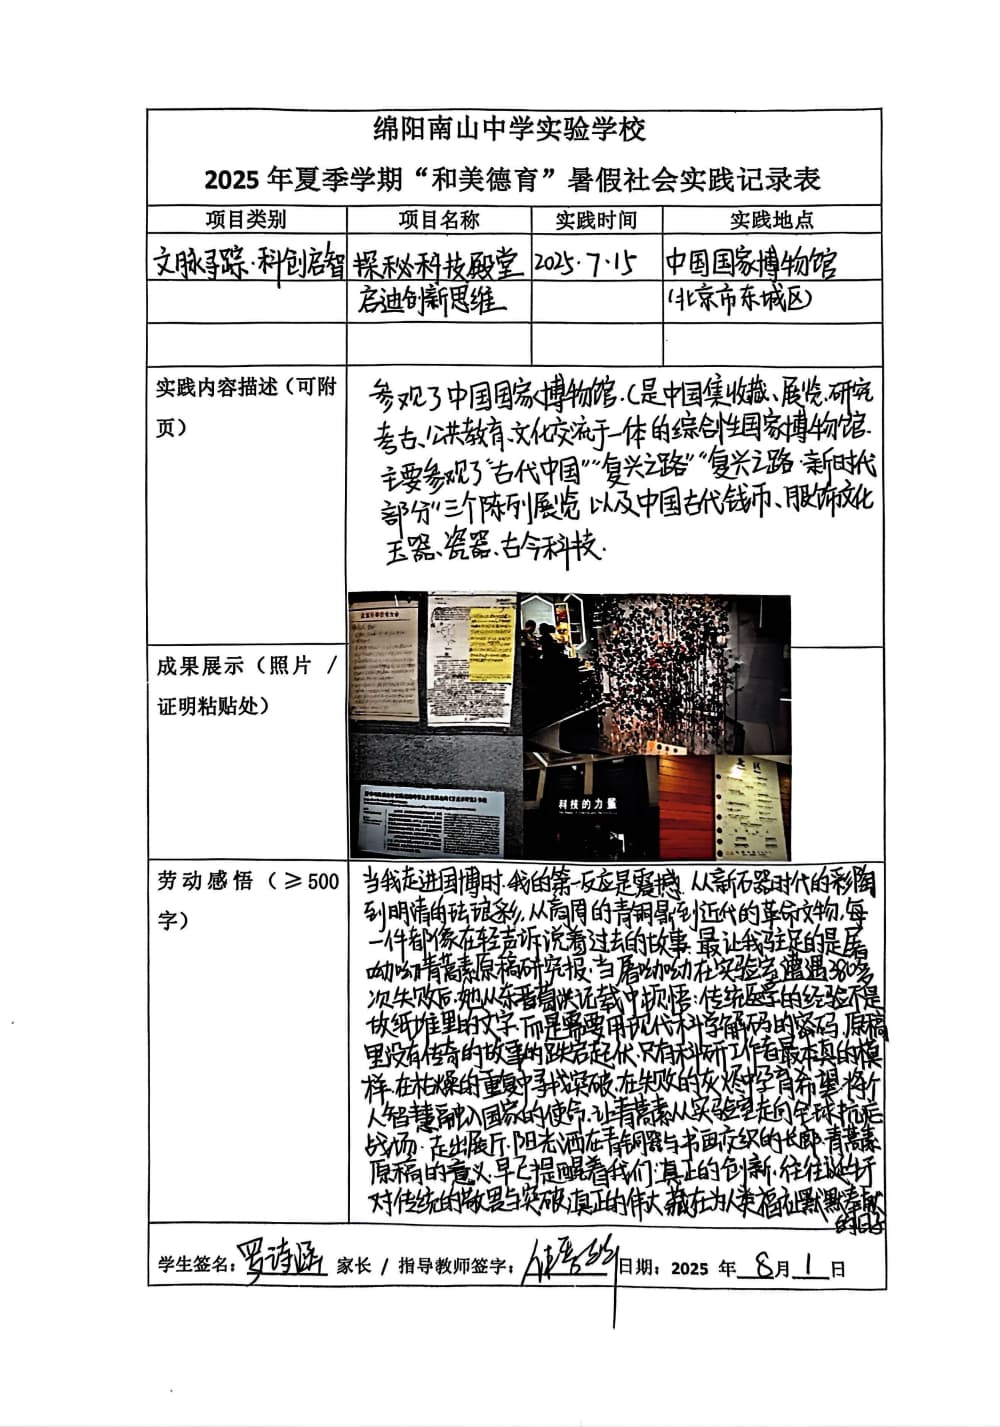 绵阳南山中学实验学校
2025 年夏季学期“和美德育”暑假社会实践记录表
项目类别 项目名称 实践时间 实践地点
文脉寻踪·科创启智 探秘科技殿堂 2025·7·15 中国国家博物馆
启迪创新思维 (北京市东城区)
实践内容描述（可附
页）
参观了中国国家博物馆.(是中国集收藏、展览、研究
考古、公共教育、文化交流于一体的综合性国家博物馆.
主要参观了“古代中国”“复兴之路”“复兴之路·新时代
部分”三个陈列展览 以及中国古代钱币、服饰文化
玉器、瓷器、古今科技.
成果展示（照片 /
证明粘贴处）
科技的力量
劳动感悟（≥500
字）
当我走进国博时,我的第一反应是震撼.从新石器时代的彩陶
到明清的珐琅彩,从商周的青铜鼎到近代的革命文物,每
一件都像在轻声诉说着过去的故事.最让我驻足的是屠
呦呦青蒿素原稿研究报.当屠呦呦在实验室遭遇380多
次失败后,她从东晋葛洪记载中顿悟:传统医学的经验不是
故纸堆里的文字,而是需要用现代科学解码的密码.原稿
里没有传奇的故事的跌宕起伏,只有科研工作者最本真的模
样,在枯燥的重复中寻找突破,在失败的灰烬中孕育希望,将个
人智慧融入国家的使命,让青蒿素从实验室走向全球抗疟
战场.走出展厅,阳光洒在青铜器与书画交织的长廊,青蒿素
原稿的意义,早已提醒着我们:真正的创新,往往诞生于
对传统的敬畏与突破,真正的伟大,藏在为人类福祉默默奉献
的日子
学生签名：罗诗涵 家长 / 指导教师签字： 日期：2025 年 8 月 1 日